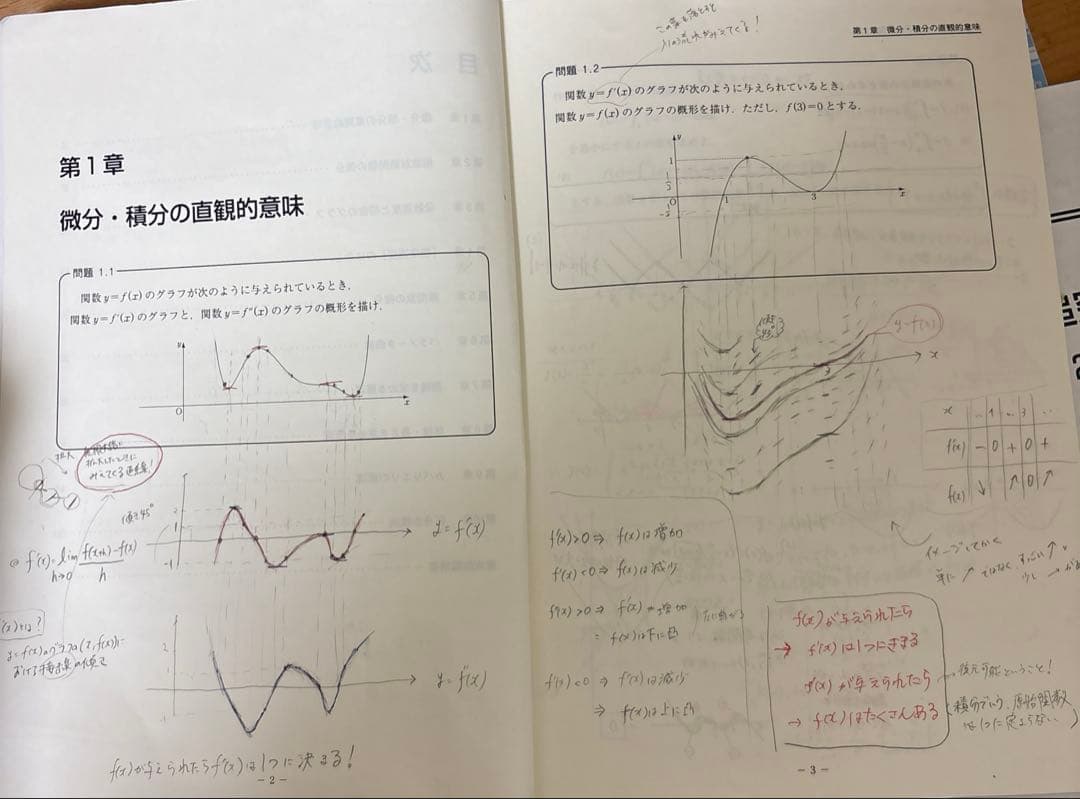 第1章
微分・積分の直観的意味
問題 1.1
関数 y=f(x) のグラフが次のように与えられているとき,
関数 y=f′(x) のグラフと, 関数 y=f″(x) のグラフの概形を描け.
y
O
x
拡大
拡大したときに
みえてくる直線!
傾き45°
2
1
-1
y=f′(x)
f′(x)=lim h→0 f(x+h)-f(x) / h
f′(x)とは?
y=f(x)のグラフの(x,f(x))に
おける接線の傾き
2
1
-1
y=f″(x)
f(x)が与えられたらf′(x)は1つに決まる!
- 2 -
第1章 微分・積分の直観的意味
問題 1.2
関数 y=f′(x) のグラフが次のように与えられているとき,
関数 y=f(x) のグラフの概形を描け. ただし, f(3)=0 とする.
y
1
1/2
O
1
3
x
-1/2
傾き
45°
y=f(x)
x
x … 1 … 3 …
f′(x) - 0 + 0 +
f(x) ↓ ↑ 0 ↑
イメージしてかく
単に ↗ ではなく、すっごい↑
f′(x)>0 ⇒ f(x)は増加
f′(x)<0 ⇒ f(x)は減少
f″(x)>0 ⇒ f′(x)が増加
⇒ f(x)は下に凸
f″(x)<0 ⇒ f′(x)は減少
⇒ f(x)は上に凸
f(x)が与えられたら
→ f′(x)は1つにきまる
f′(x)が与えられたら
→ f(x)はたくさんある
復元可能ということ!
(積分でいう、原始関数
は1つに定まらない)
- 3 -